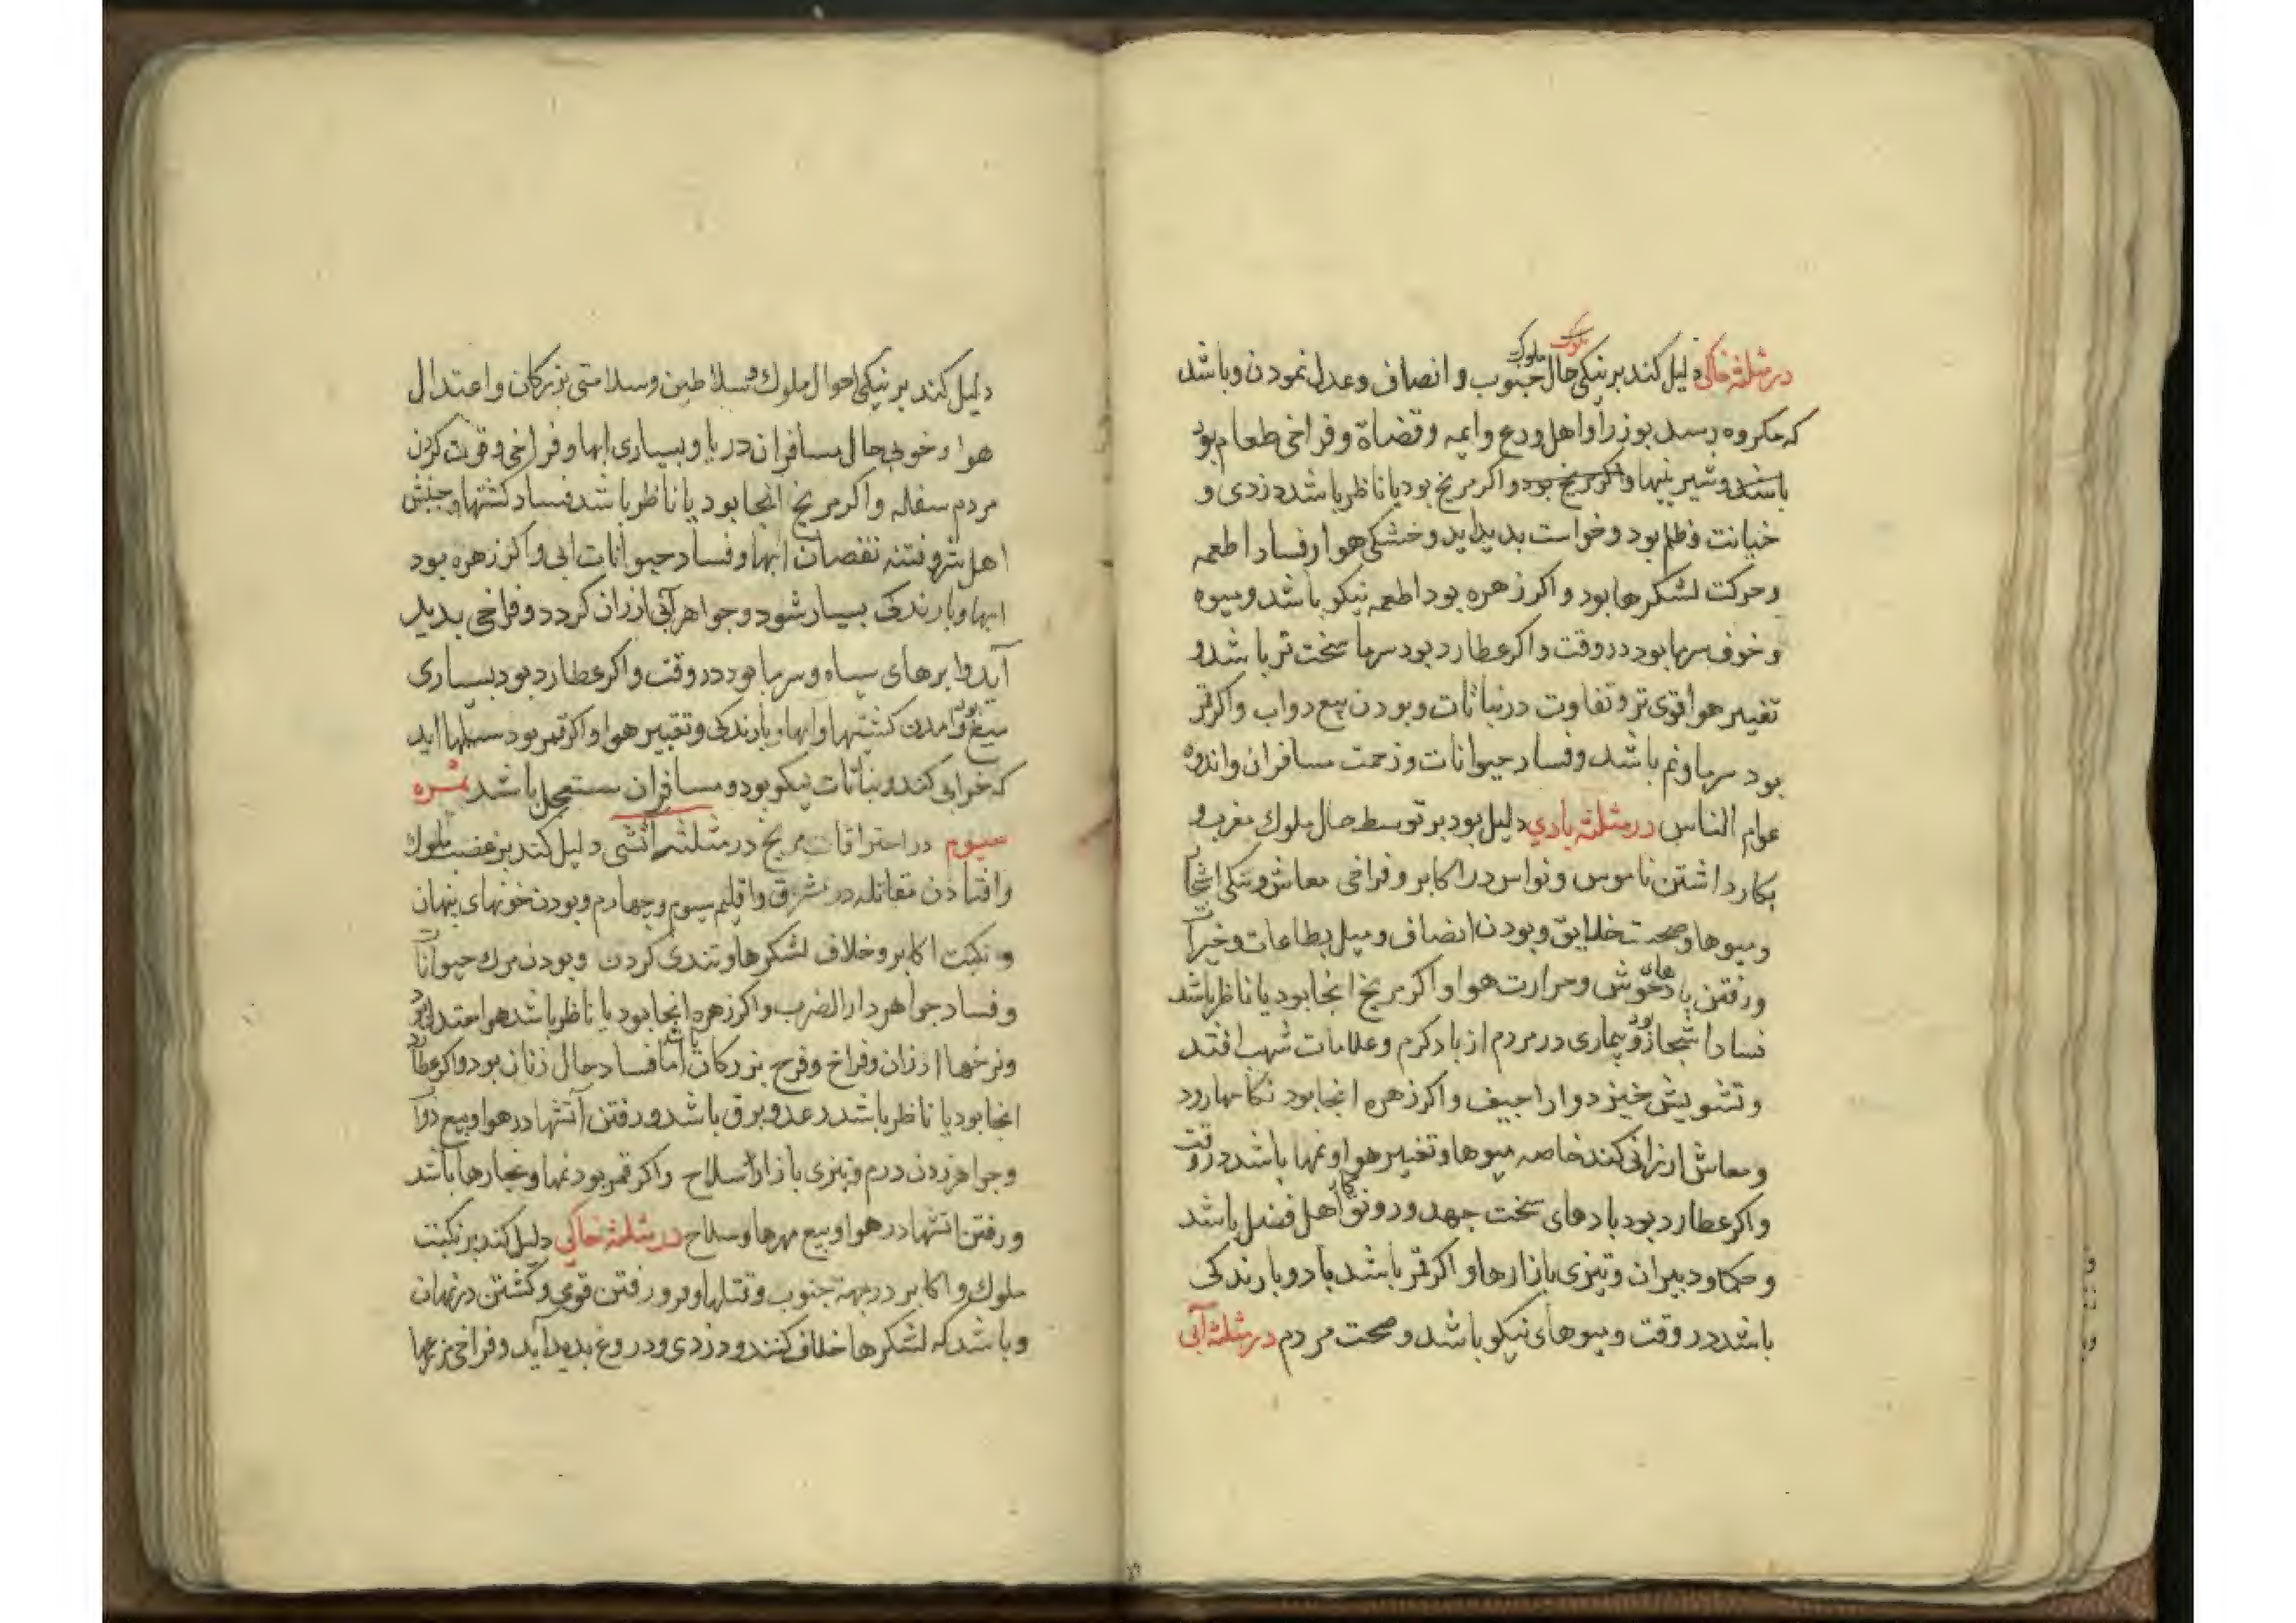 در مثلثه خاکی دلیل کند بر نیکی حال ملوک جنوب و انصاف و عدل نمودن و باشد
که مکروه رسد بوزرا و اهل ورع و ایمه و قضاة و فراخی طعام بود
باشد و شیرینیها و اکر مریخ بود و اکر مریخ بود یا ناظر باشد دزدی و
خیانت و ظلم بود و خواست بدید اید و خشکی هوا و فساد اطعمه
و حرکت لشکرها بود و اکر زهره بود اطعمه نیکو باشد و میوه
و خوف سرما بود در وقت و اکر عطارد بود سرما سخت تر باشد و
تغییر هوا قوی تر و تفاوت در نباتات و بودن بیع دواب و اکر قمر
بود سرما و نم باشد و فساد حیوانات و زحمت مسافران و اندوه
عوام الناس در مثلثه بادی دلیل بود بر توسط حال ملوک مغرب و
بکار داشتن ناموس و نواس در اکابر و فراخی معاش و نیکی اشجا
و میوها و صحت خلایق و بودن انصاف و میل بطاعات و خیرات
و رفتن بادهای خوش و حرارت هوا و اکر مریخ انجا بود یا ناظر باشد
فساد اشجار بود و بیماری در مردم از باد کرم و علامات شهب افتد
و تشویش خیزد و اراجیف و اکر زهره انجا بود نکاحها رود
و معاش ارزانی کند خاصه میوها و تغییر هوا و نمها باشد در وقت
و اکر عطارد بود بادهای سخت جهد و رونق کار اهل فضل باشد
و حکما و دبیران و تیزی بازارها و اکر قمر باشد باد و بارندکی
باشد در وقت و میوهای نیکو باشد و صحت مردم در مثلثه آبی
دلیل کند بر نیکی احوال ملوک و سلاطین و سلامتی بزرکان و اعتدال
هوا و خوبی حال مسافران دریا و بسیاری ابها و فراخی و قوت کردن
مردم سفله و اکر مریخ انجا بود یا ناظر باشد فساد کشتها و جنبش
اهل شر و فتنه نقصان ابها و فساد حیوانات ابی و اکر زهره بود
ابها و بارندکی بسیار شود و جواهر آبی ارزان کردد و فراخی بدید
آید و ابرهای سیاه و سرما بود در وقت و اکر عطارد بود بسیاری
میغ بود و امدن کشتیها و ابها و بارندکی و تغییر هوا و اکر قمر بود سیلها اید
که خرابی کند و نباتات نیکو بود و مسافران مستعجل باشد ثمره
سیوم در احتراقات مریخ در مثلثه اتشی دلیل کند بر غضب ملوک
و افتادن مقاتله در مشرق و اقلیم سیوم و چهارم و بودن خونهای پنهان
و نکبت اکابر و خلاف لشکرها و تندی کردن و بودن مرک حیوانات
و فساد جواهر دار الضرب و اکر زهره انجا بود یا ناظر باشد هوا معتدل بود
و نرخها ارزان و فراخ و فرح بزرکان باشد اما فساد حال زنان بود و اکر عطارد
انجا بود یا ناظر باشد رعد و برق باشد و رفتن آتشها در هوا و بیع دواب
و جواهر زدن درم و تیزی بازار سلاح و اکر قمر بود نمها و بخارها باشد
و رفتن اتشها در هوا و بیع مهرها و سلاح در مثلثه خاکی دلیل کند بر نکبت
ملوک و اکابر در جهة جنوب و قتلها و فرو رفتن قوی و کشتن در نهان
و باشد که لشکرها خلاف کنند و دزدی و دروغ بدید آید و فراخی نرخها